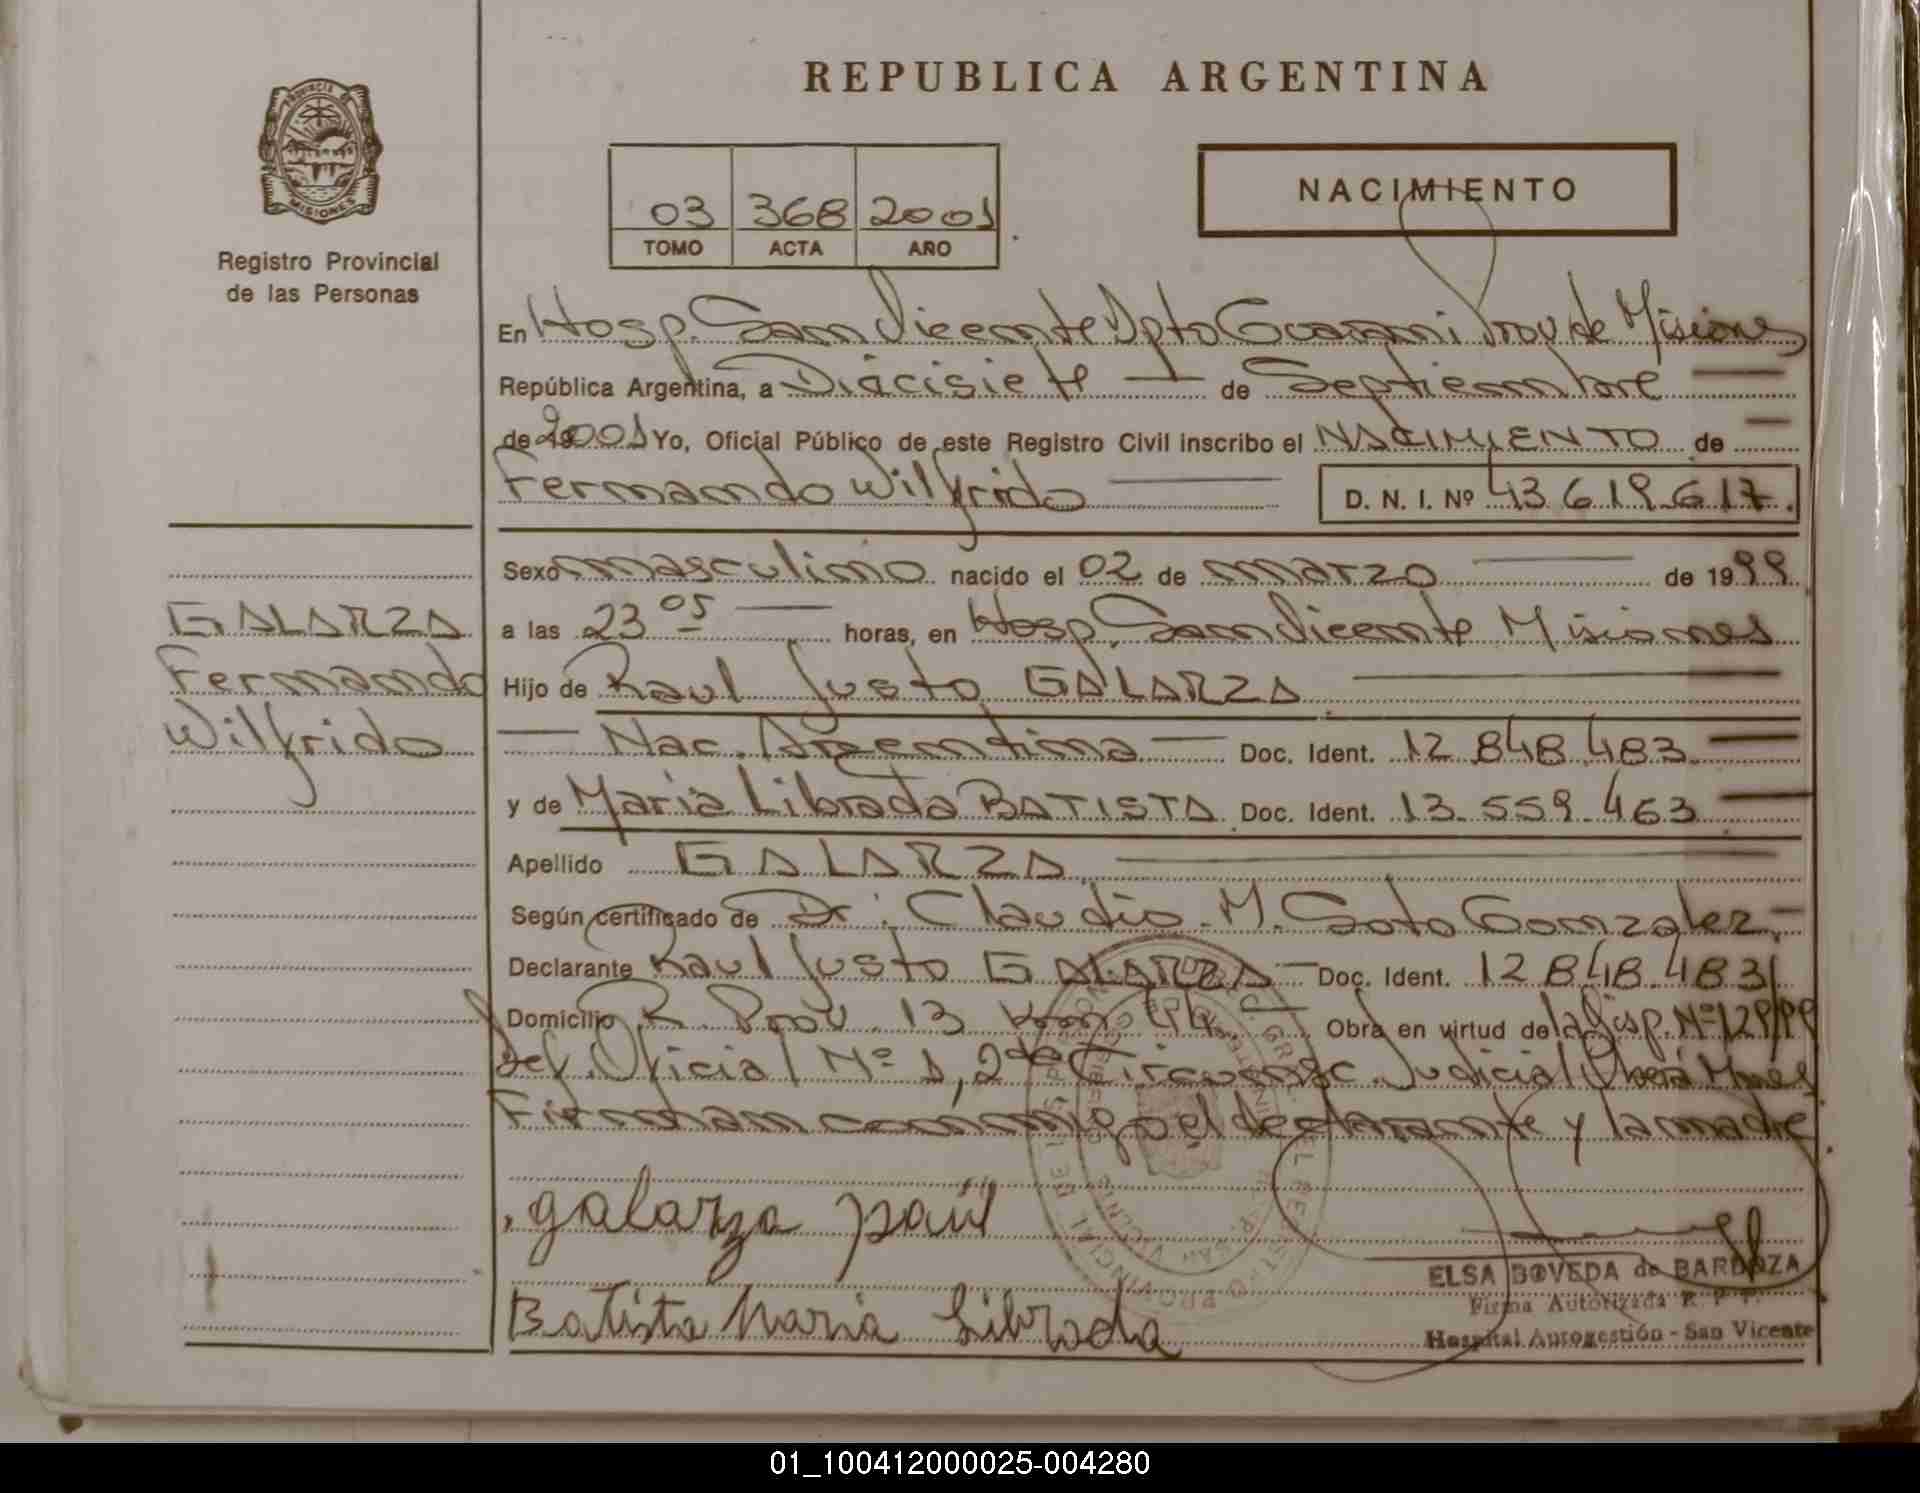 REPUBLICA ARGENTINA
PROVINCIA DE
MISIONES
Registro Provincial
de las Personas
03 368 2001
TOMO ACTA AÑO
NACIMIENTO
En Hosp. San Vicente Dpto Guarani Prov de Misiones
República Argentina, a Diecisiete — de Septiembre —
de 2001 Yo, Oficial Público de este Registro Civil inscribo el NACIMIENTO de —
Fernando Wilfrido — D. N. I. Nº 43.619.617.
Sexo masculino nacido el 02 de marzo — de 1999
GALARZA
Fernando
Wilfrido
a las 23 05 — horas, en Hosp. San Vicente Misiones
Hijo de Raul Justo GALARZA —
— Nac. Argentina — Doc. Ident. 12.848.483 —
y de Maria Librada BATISTA Doc. Ident. 13.559.463 —
Apellido GALARZA —
Según certificado de Dr. Claudio M. Soto Gonzalez —
Declarante Raul Justo GALARZA — Doc. Ident. 12.848.483
Domicilio R. Prov. 13 Km 44 — Obra en virtud de la Disp. Nº 129/99
Def. Oficial Nº 1, 2da Circunsc. Judicial Oberá Mnes
Firman conmigo el declarante y la madre.
galarza Raúl
Batista Maria Librada
ELSA BOVEDA de BARBOZA
Firma Autorizada R. P. P.
Hospital Autogestión - San Vicente
01_100412000025-004280